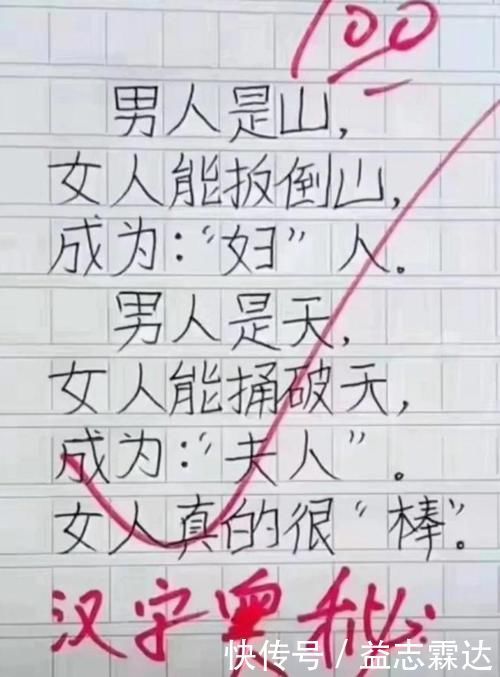 100
男人是山,
女人能扳倒山,
成为:“妇”人。
男人是天,
女人能捅破天,
成为:“夫人”。
女人真的很“棒”。
汉字奥秘
快传号/益志霖达